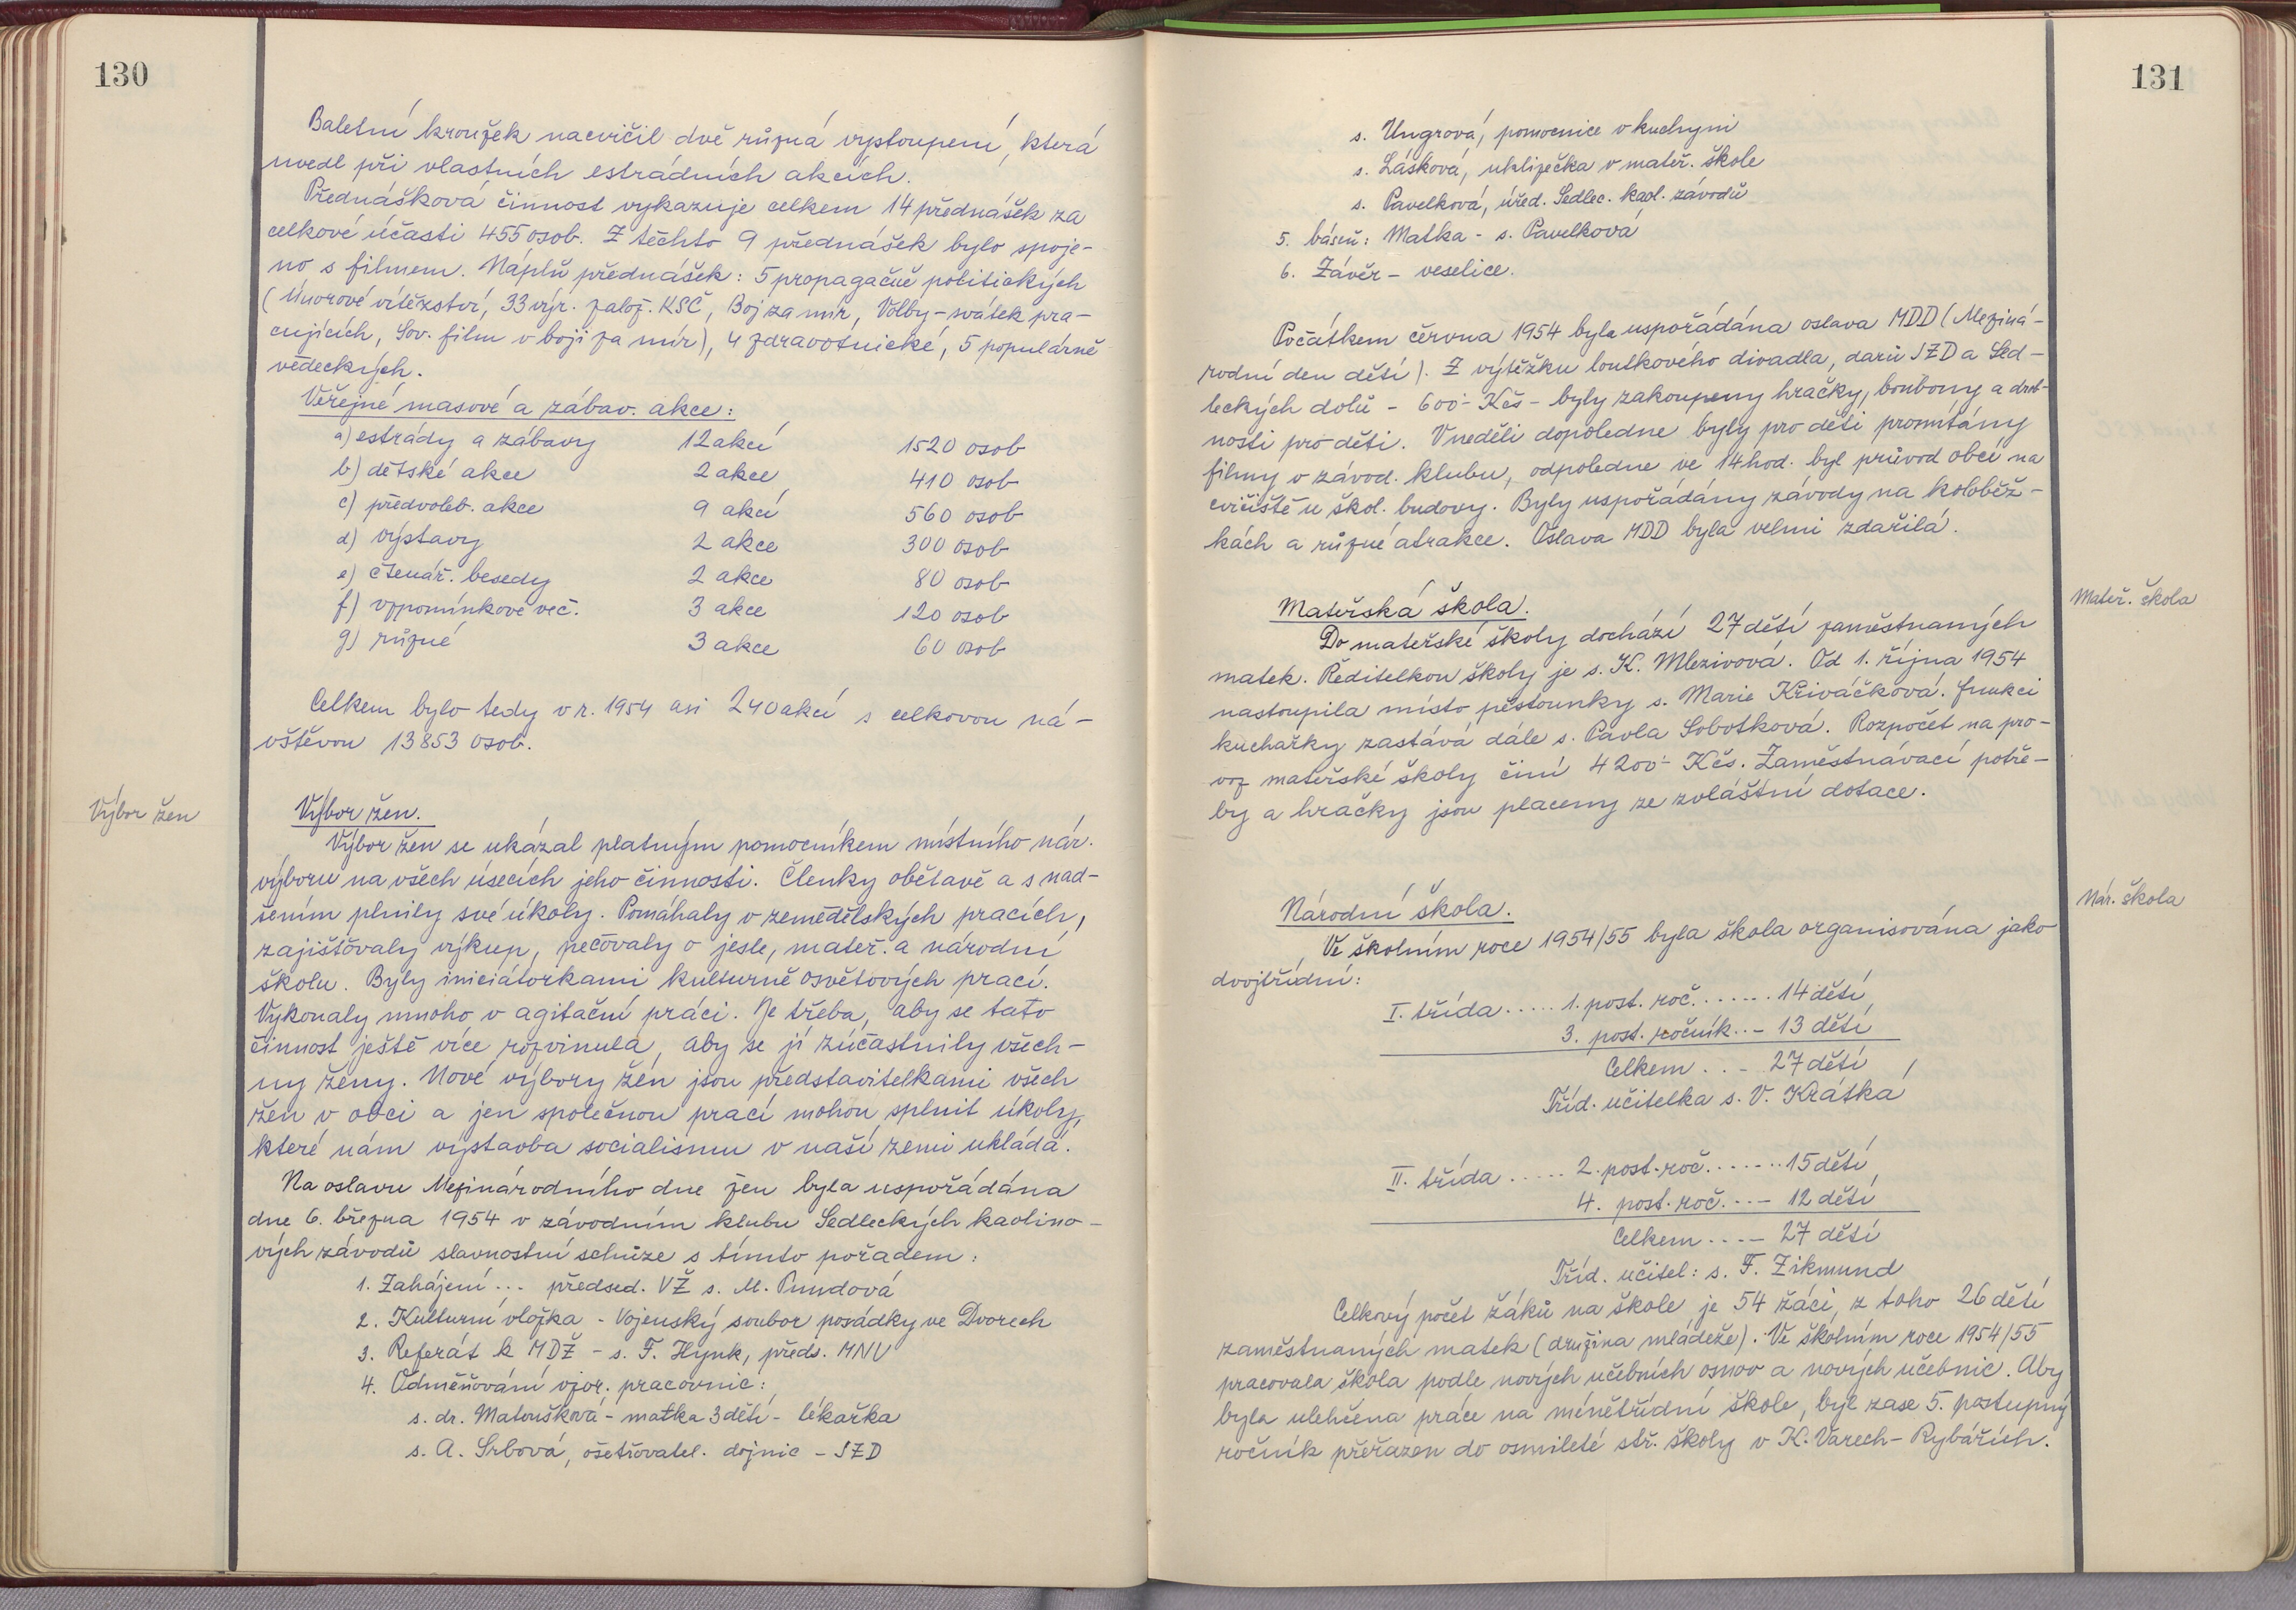 130
Baletní kroužek nacvičil dvě různá vystoupení, která
uvedl při vlastních estrádních akcích.
Přednášková činnost vykazuje celkem 14 přednášek za
celkové účasti 455 osob. Z těchto 9 přednášek bylo spoje-
no s filmem. Náplň přednášek: 5 propagačně politických
(Únorové vítězství, 33 výr. založ. KSČ, Boj za mír, Volby – svátek pra-
cujících, Sov. film v boji za mír), 4 zdravotnické, 5 populárně
vědeckých.
Veřejné masové a zábav. akce:
a) estrády a zábavy 12 akcí 1520 osob
b) dětské akce 2 akce 410 osob
c) předvoleb. akce 9 akcí 560 osob
d) výstavy 2 akce 300 osob
e) čtenář. besedy 2 akce 80 osob
f) vzpomínkové več. 3 akce 120 osob
g) různé 3 akce 60 osob
Celkem bylo tedy v r. 1954 asi 240 akcí s celkovou ná-
vštěvou 13853 osob.
Výbor žen
Výbor žen.
Výbor žen se ukázal platným pomocníkem místního nár.
výboru na všech úsecích jeho činnosti. Členky obětavě a s nad-
šením plnily své úkoly. Pomáhaly v zemědělských pracích,
zajišťovaly výkup, pečovaly o jesle, mateř. a národní
školu. Byly iniciátorkami kulturně osvětových prací.
Vykonaly mnoho v agitační práci. Je třeba, aby se tato
činnost ještě více rozvinula, aby se jí zúčastnily všech-
ny ženy. Nové výbory žen jsou představitelkami všech
žen v obci a jen společnou prací mohou splnit úkoly,
které nám výstavba socialismu v naší zemi ukládá.
Na oslavu Mezinárodního dne žen byla uspořádána
dne 6. března 1954 v závodním klubu Sedleckých kaolino-
vých závodů slavnostní schůze s tímto pořadem:
1. Zahájení ... předsed. VŽ s. M. Pundová
2. Kulturní vložka - Vojenský soubor posádky ve Dvorech
3. Referát k MDŽ - s. F. Hynk, předs. MNV
4. Odměňování vzor. pracovnic:
s. dr. Matoušková - matka 3 dětí - lékařka
s. A. Srbová, ošetřovatel. dojnic - JZD
131
s. Ungrová, pomocnice v kuchyni
s. Lásková, uklizečka v mateř. škole
s. Pavelková, úřed. Sedlec. kaol. závodů
5. báseň: Matka - s. Pavelková
6. Závěr - veselice.
Počátkem června 1954 byla uspořádána oslava MDD (Meziná-
rodní den dětí). Z výtěžku loutkového divadla, darů JZD a Sed-
leckých dolů - 600·- Kčs - byly zakoupeny hračky, bonbony a drob-
nosti pro děti. V neděli dopoledne byly pro děti promítány
filmy v závod. klubu, odpoledne ve 14 hod. byl průvod obcí na
cvičiště u škol. budovy. Byly uspořádány závody na koloběž-
kách a různé atrakce. Oslava MDD byla velmi zdařilá.
Mateř. škola
Mateřská škola.
Do mateřské školy dochází 27 dětí zaměstnaných
matek. Ředitelkou školy je s. K. Mlezivová. Od 1. října 1954
nastoupila místo pěstounky s. Marie Křiváčková. Funkci
kuchařky zastává dále s. Pavla Sobotková. Rozpočet na pro-
voz mateřské školy činí 4200·- Kčs. Zaměstnávací potře-
by a hračky jsou placeny ze zvláštní dotace.
Nár. škola
Národní škola.
Ve školním roce 1954/55 byla škola organisována jako
dvojtřídní:
I. třída ..... 1. post. roč. ...... 14 dětí
3. post. ročník .. - 13 dětí
Celkem .. - 27 dětí
Tříd. učitelka s. V. Krátká
II. třída ..... 2. post. roč. ...... 15 dětí
4. post. roč. ... - 12 dětí
Celkem ... - 27 dětí
Tříd. učitel: s. F. Zikmund
Celkový počet žáků na škole je 54 žáci, z toho 26 dětí
zaměstnaných matek (družina mládeže). Ve školním roce 1954/55
pracovala škola podle nových učebních osnov a nových učebnic. Aby
byla ulehčena práce na ménětřídní škole, byl zase 5. postupný
ročník přeřazen do osmileté stř. školy v K. Varech - Rybářích.